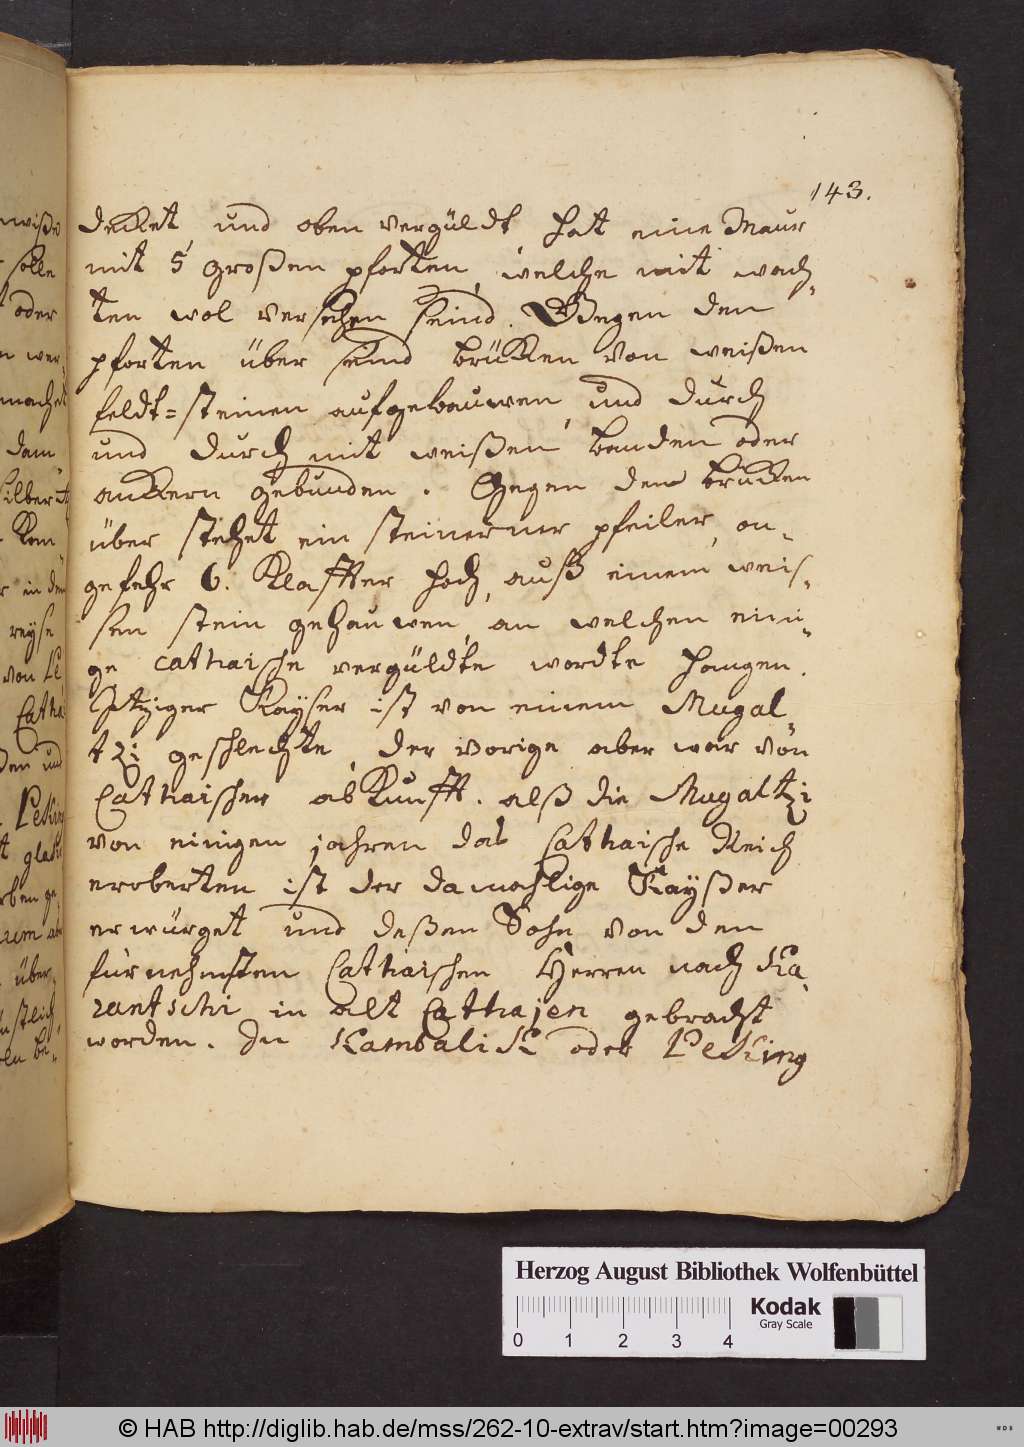 143.
decket und oben vergüldt hat eine Maur
mit 5 großen pforten, welche mit wach-
ten wol versehen seind. Gegen den
pforten über seind brükken von weißen
feldt=steinen aufgebauwen, und durch
und durch mit weißen banden oder
ankkern gebunden. Gegen dem brükken
über stehet ein steinerner pfeiler, on-
gefehr 6. Klaffter hoch, auß einem weis-
sen stein gehauwen, an welchen eini-
ge cathaische vergüldte wordte hangen.
Jtziger Kayser ist von einem Mugal-
tzi geschlechte, der vorige aber war von
Cathaischer abkunfft. alß die Mugaltzi
von einigen jahren das Cathaische Reich
eroberten ist der damahlige Kayßer
erwürget und deßen Sohn von den
fürnehmsten Cathaischen Herren nach Ka-
rantschi in alt Cathajen gebracht
worden. In Kambalikk oder Peking
Herzog August Bibliothek Wolfenbüttel
0 1 2 3 4
Kodak
Gray Scale
© HAB http://diglib.hab.de/mss/262-10-extrav/start.htm?image=00293